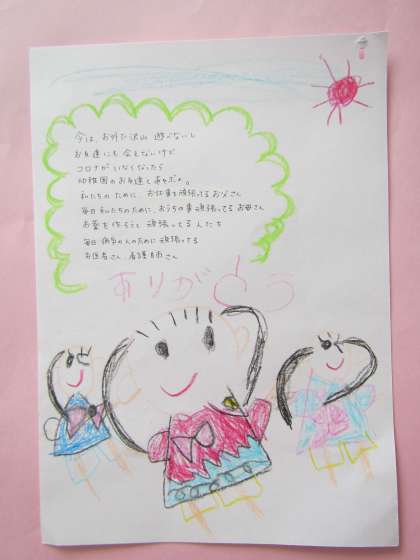 今は、お外で沢山 遊べないし
お友達にも会えないけど
コロナがいなくなったら
幼稚園のお友達と遊ぶよ。
私たちのために、お仕事を頑張ってるお父さん
毎日私たちのために、おうちの事頑張ってるお母さん
お薬を作ろうと頑張ってる人たち
毎日病気の人のために頑張ってる
お医者さん、看護師さん
ありがとう